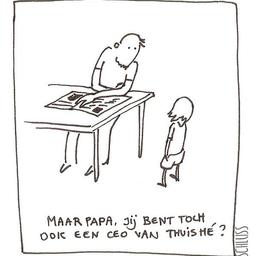 MAAR PAPA, JIJ BENT TOCH
OOK EEN CEO VAN THUIS HÉ?
SCHLUSS